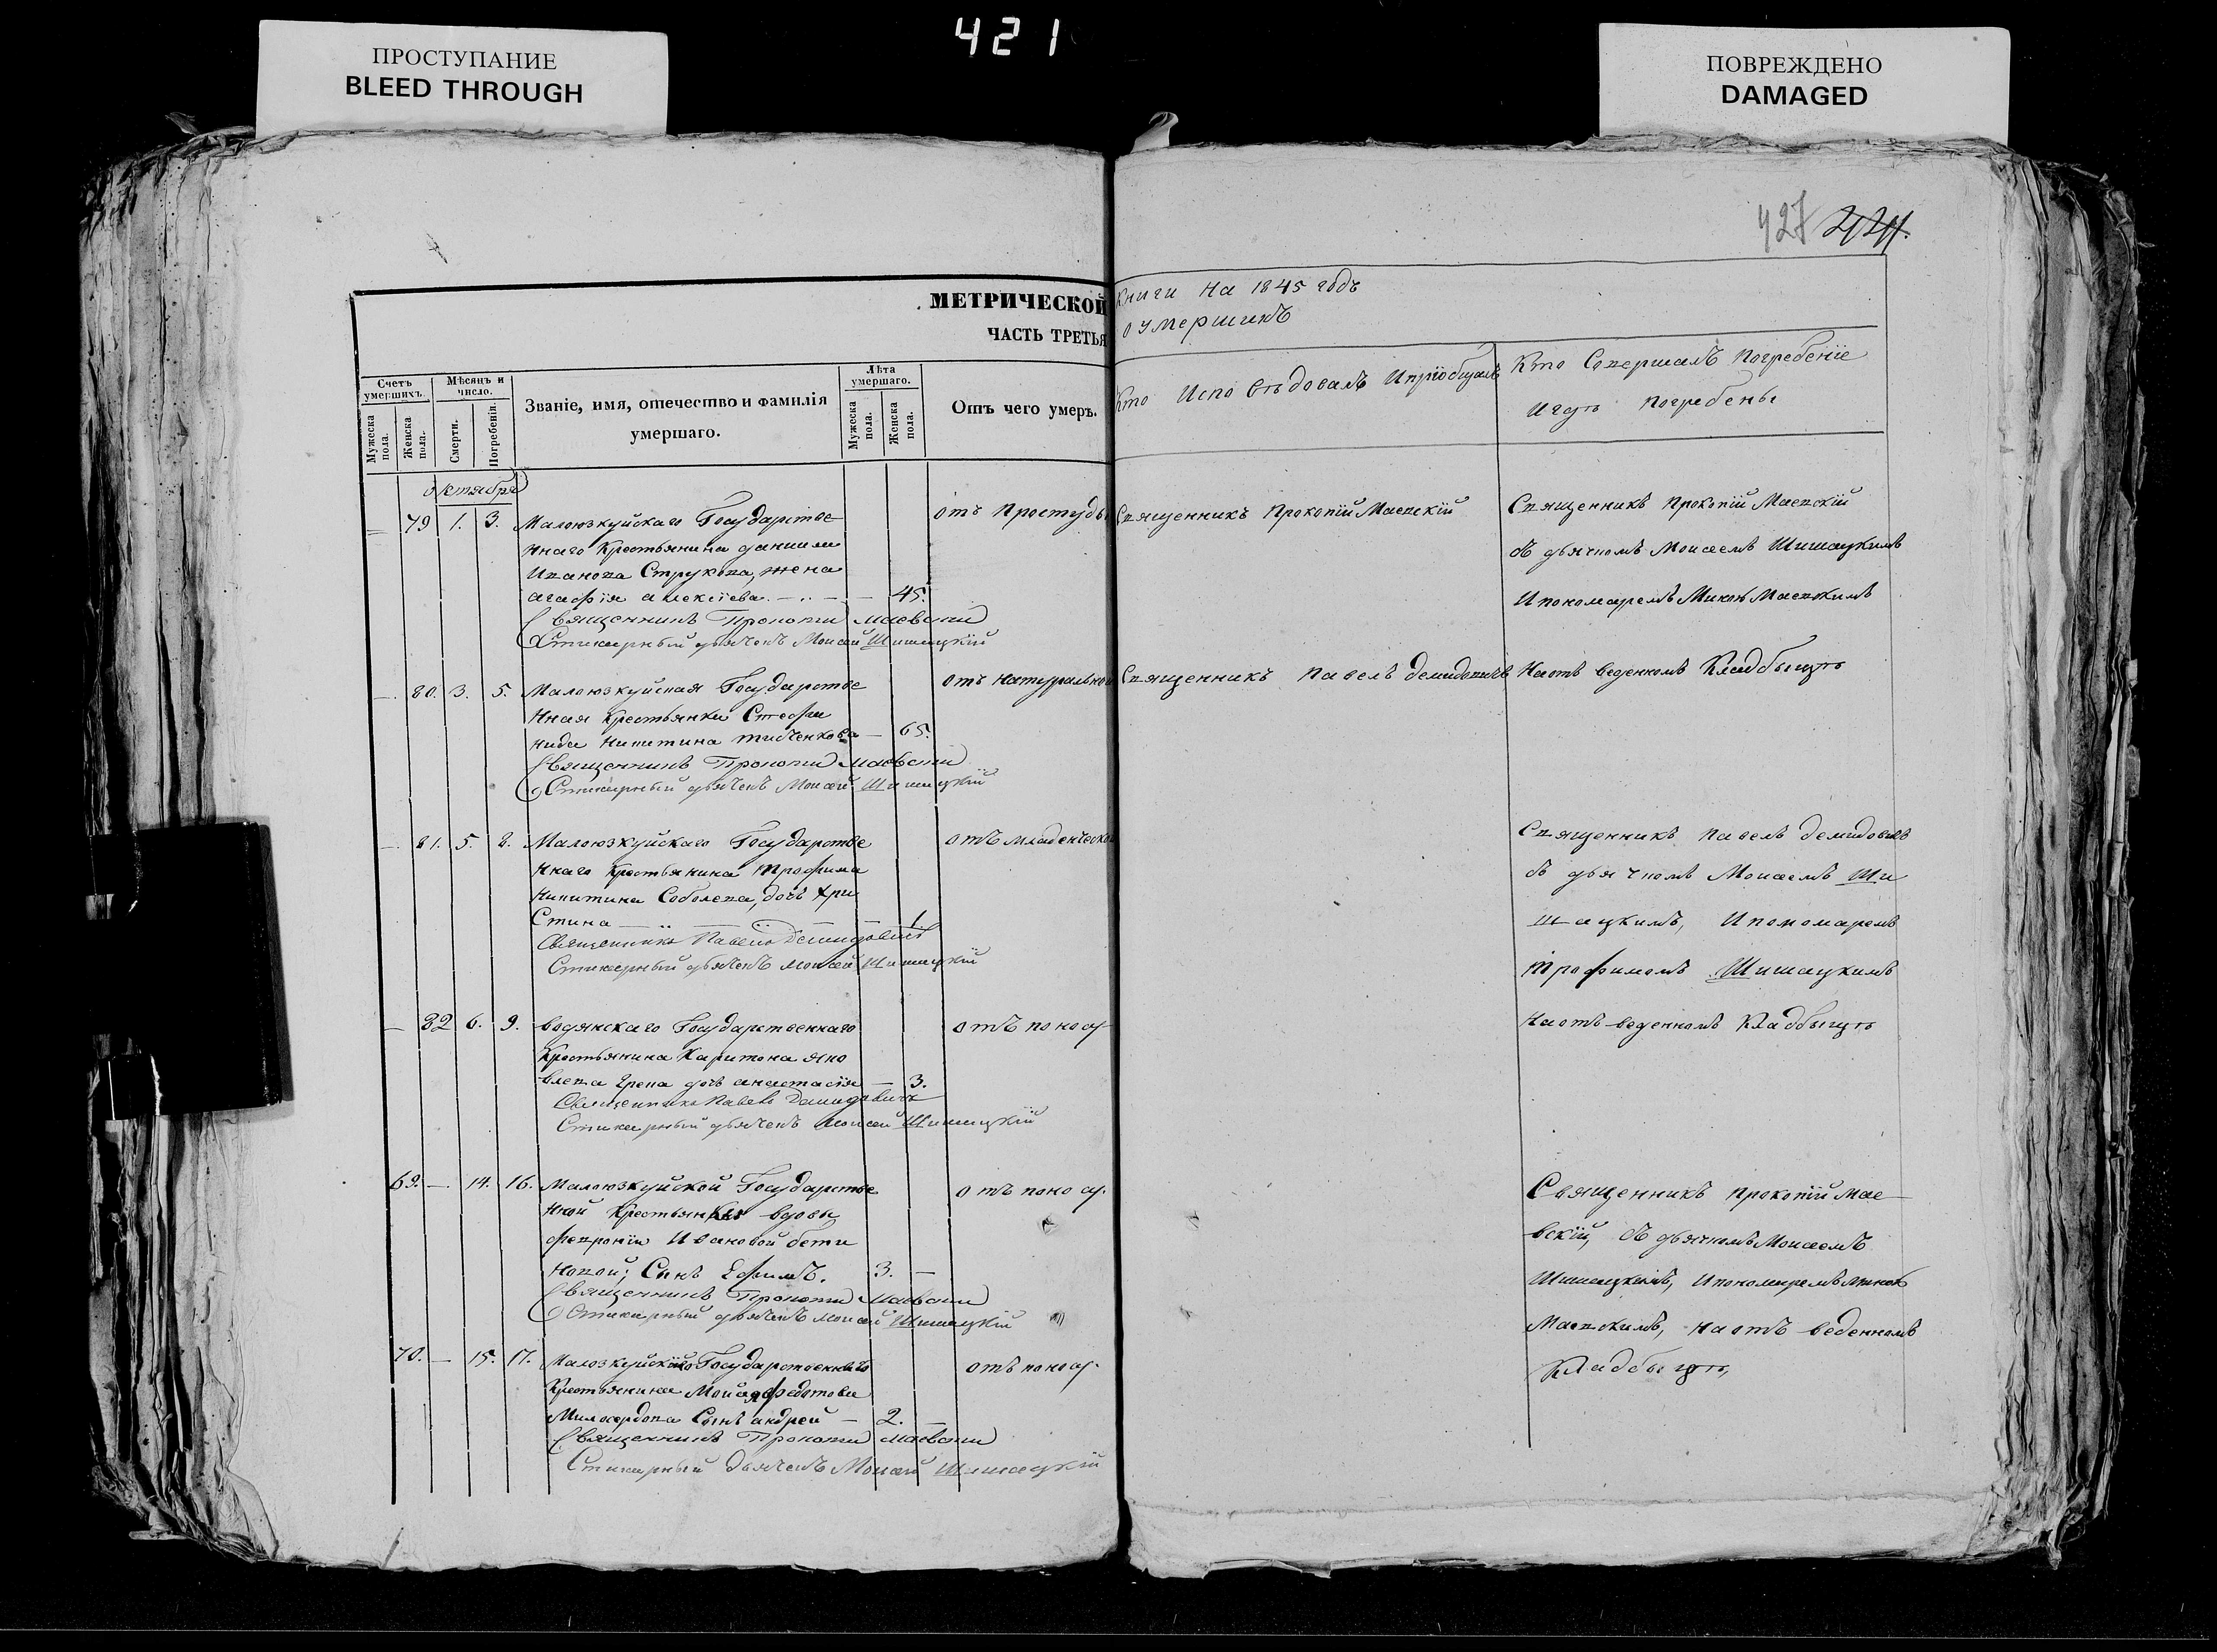 421
ПРОСТУПАНИЕ
BLEED THROUGH
ПОВРЕЖДЕНО
DAMAGED
427 424.
МЕТРИЧЕСКОЙ Книги на 1845 годъ
ЧАСТЬ ТРЕТЬЯ о умершихъ
Счетъ умершихъ.
Мужеска пола.
Женска пола.
Мѣсяцъ и число.
Смерти.
Погребенія.
Званіе, имя, отечество и фамилія
умершаго.
Лѣта умершаго.
Мужеска пола.
Женска пола.
Отъ чего умеръ.
Кто Исповѣдовалъ Ипріобщалъ
Кто Совершалъ Погребеніе
Игдѣ Погребены
октября
— 79 1. 3. Малоюзкуйскаго Государстве
ннаго Крестьянина даниила
Иванова Струкова, жена
агафія алексіева. — 45.
Священникъ Прокопій Маевскій
Стихарный дьячекъ Моисей Шишацкій
отъ Простуды
Священникъ Прокопій Маевскій
Священникъ Прокопій Маевскій
съ дьячкомъ Моисеемъ Шишацкимъ
Ипономаремъ Маевскимъ
На отъведенномъ Кладбыщѣ
— 80. 3. 5. Малоюзкуйская Государстве
нная Крестьянка Стефа
нида Никитина — 65.
Священникъ Прокопій Маевскій
Стихарный дьячекъ Моисей Шишацкій
отъ Натуральной
Священникъ Павелъ Демидовичъ
— 81. 5. 8. Малоюзкуйскаго Государстве
ннаго Крестьянина трофима
Никитина Соболева, дочь хри
Стина — 1.
Священникъ Павелъ Демидовичъ
Стихарный дьячекъ Моисей Шишацкій
отъ младенческой
Священникъ Павелъ Демидовичъ
съ дьячкомъ Моисеемъ Ши
шацкимъ, Ипономаремъ
трофимомъ Шишацкимъ
На отъведенномъ Кладбыщѣ
— 82 6. 9. водянскаго Государственнаго
Крестьянина Харитона яко
влева дочь анастасія — 3.
Священникъ Павелъ Демидовичъ
Стихарный дьячекъ Моисей Шишацкій
отъ поноса
69. — 14. 16. Малоюзкуйской Государстве
нной Крестьянки вдовы
февроніи Ивановой бети
новой; Сынъ Ефимъ. 3. —
Священникъ Прокопій Маевскій
Стихарный дьячекъ Моисей Шишацкій
отъ поноса.
Священникъ прокопій Мае
вскій, съ дьячкомъ Моисеемъ
Шишацкимъ, Ипономаремъ
Маевскимъ, на отъведенномъ
Кладбыщѣ,
70. — 15. 17. Государственнаго
Крестьянина Моисея федотова
Милосердова Сынъ андрей — 2. —
Священникъ Прокопій Маевскій
Стихарный дьячекъ Моисей Шишацкій
отъ поноса.